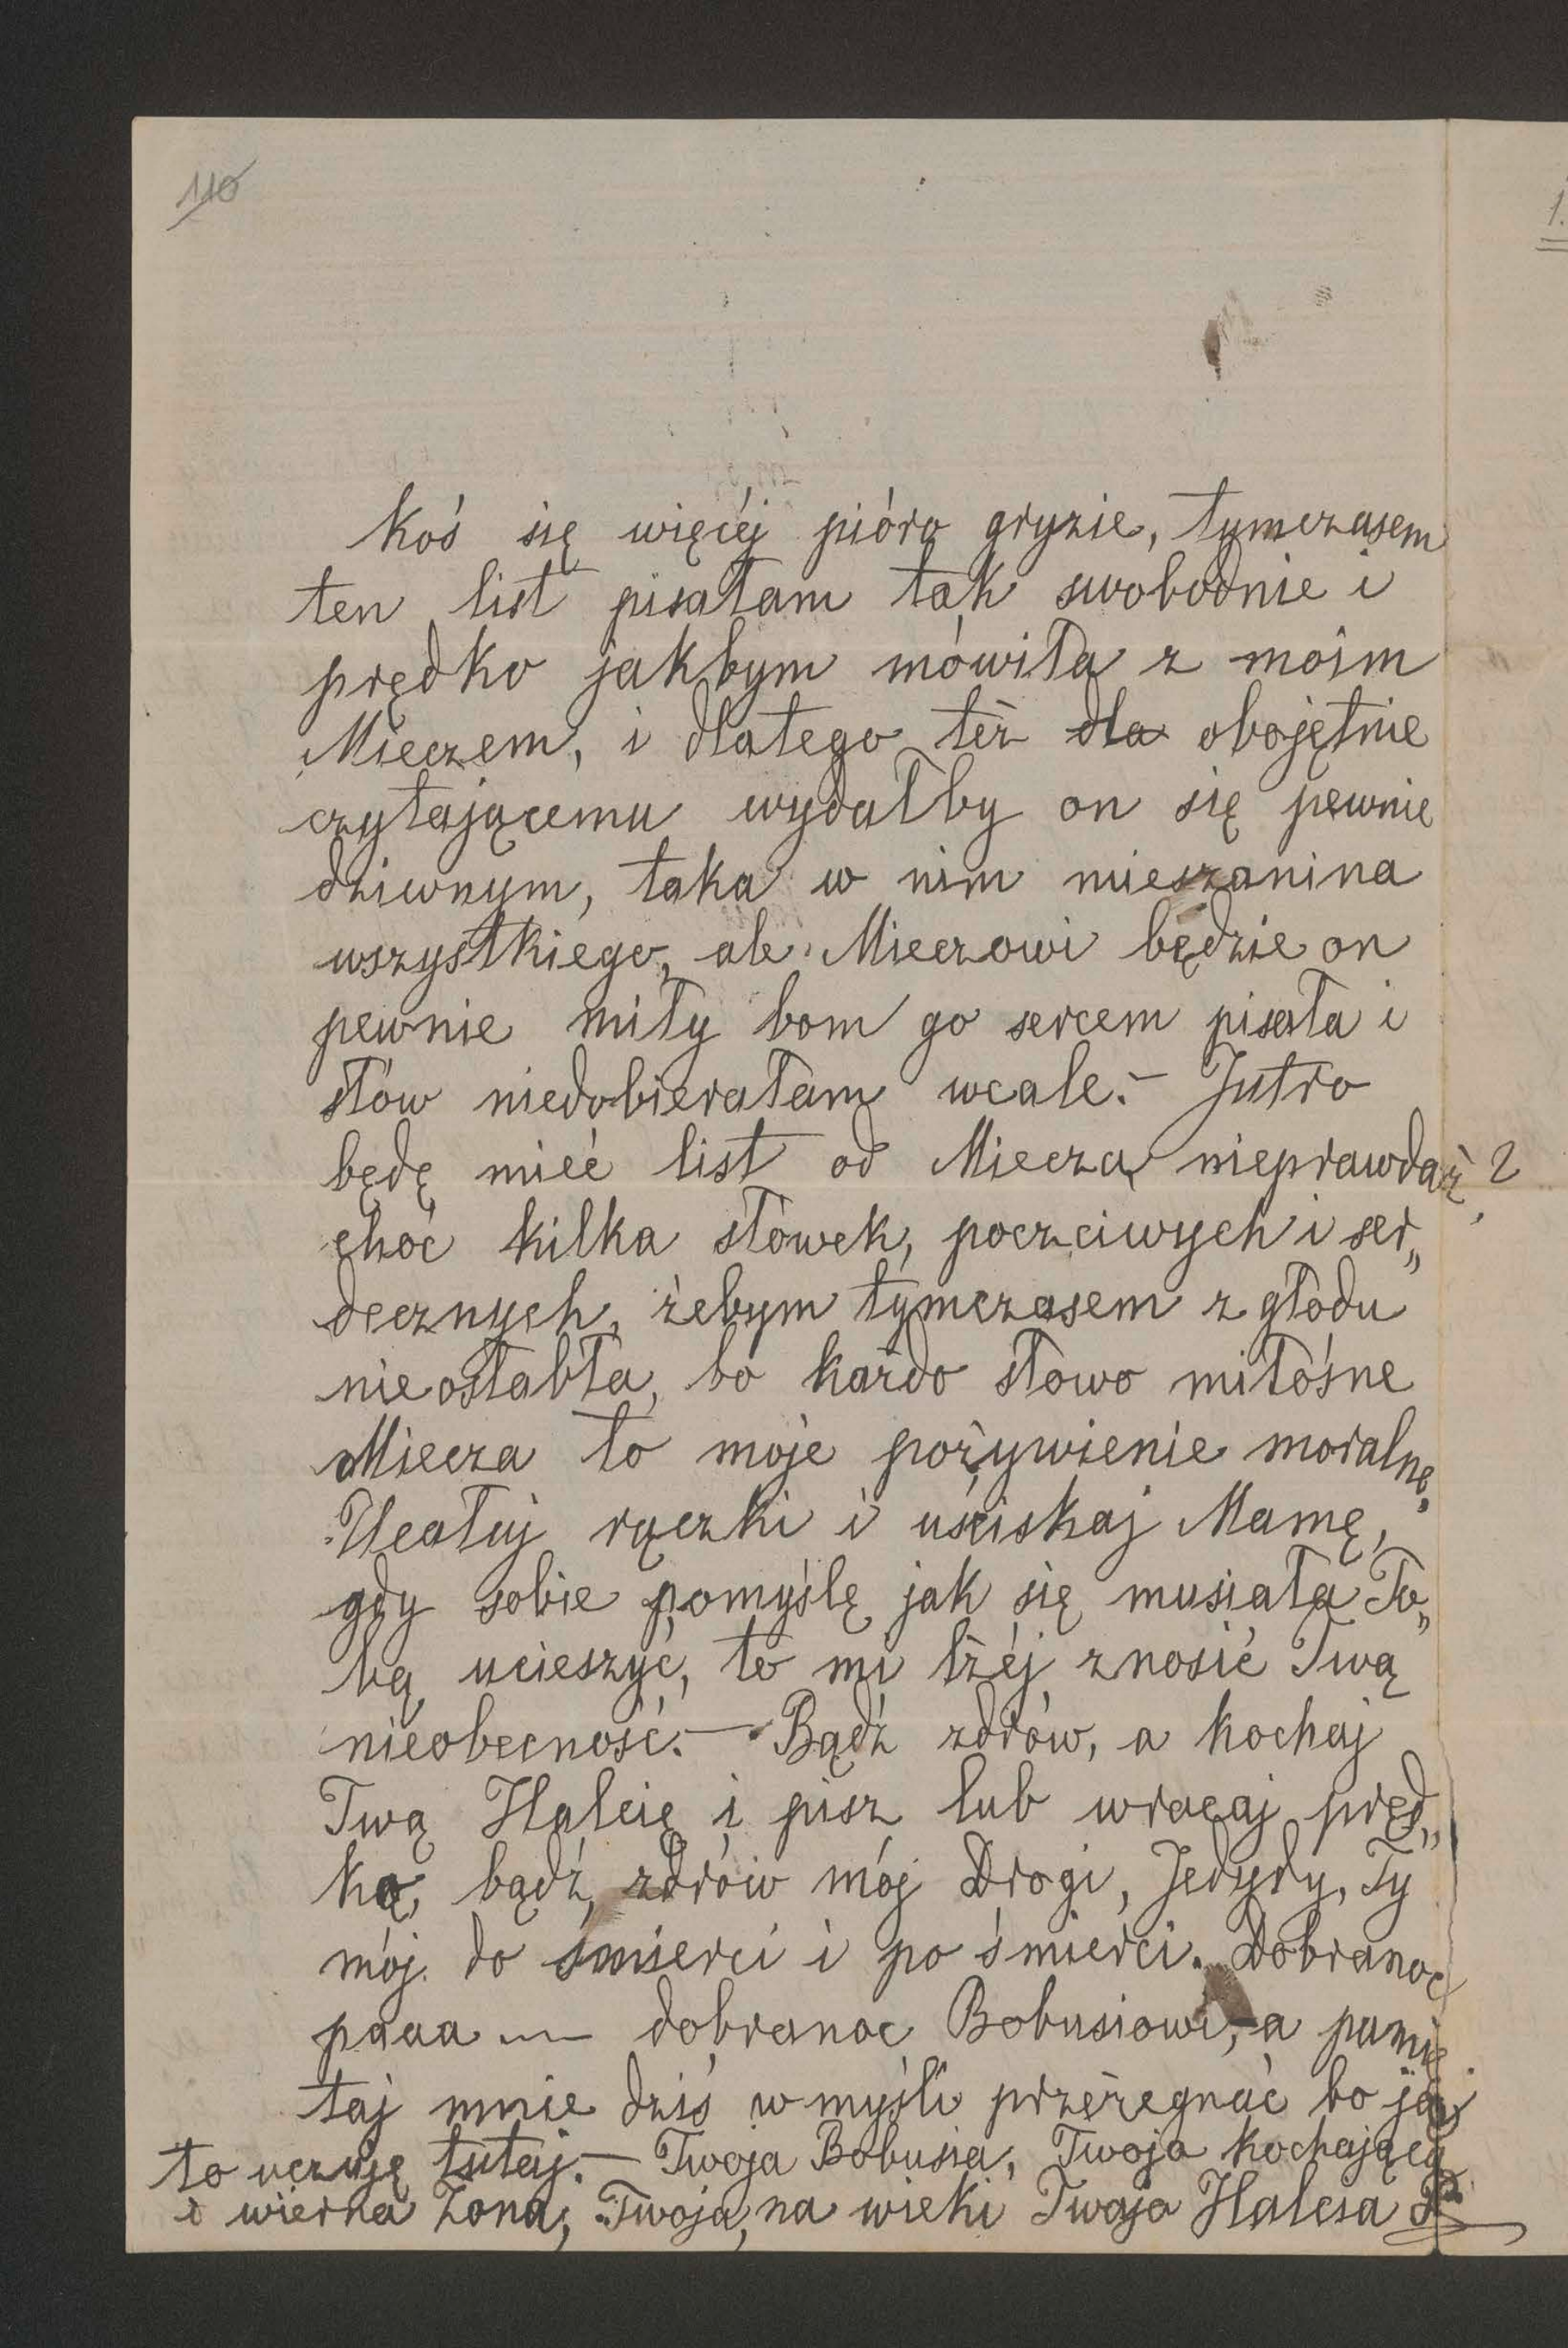 110
1.
koś się więcéj pióro gryzie, tymczasem
ten list pisałam tak swobodnie i
prędko jakbym mówiła z moim
Mieczem, i dlatego też dla obojętnie
czytającemu wydałby on się pewnie
dziwnym, taka w nim mieszanina
wszystkiego, ale Mieczowi będzie on
pewnie miły bom go sercem pisała i
słów niedobierałam wcale.– Jutro
będę mieć list od Miecza, nieprawdaż?
choć kilka słówek, poczciwych i ser„
decznych, żebym tymczasem z głodu
nieosłabła, bo każdo słowo miłośne
Miecza to moje pożywienie moralne.
Ucałuj rączki i uściskaj Mamę,
gdy sobie pomyślę jak się musiała To„
bą ucieszyć, to mi lżéj znosić Twą
nieobecność.— Bądź zdrów, a kochaj
Twą Halcię i pisz lub wracaj pręd„
ko, bądź zdrów mój Drogi, Jedydy, Ty
mój do śmierci i po śmierci. Dobranoc
paaa — dobranoc Bobusiowi, a pamię
taj mnie dziś w myśli przeżegnać bo ja
to uczuję tutaj.— Twoja Bobusia, Twoja kochająca
i wierna żona, Twoja, na wieki Twoja Halcsa